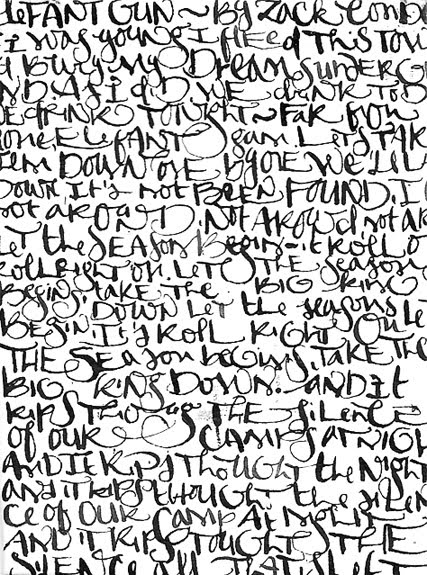 LEFANT GUN ~ By ZACK COND
i was young I fleed THIS TOW
d Bury My Dream UNDERG
ND AS I did WE drink TO D
E DRINK TONIGHT ~ FAR FROM
ONE ELEFANT gun. LETS TAK
em DOWN ONE by ONE WE'LL L
DOWN IT'S not BEEN FOUND, I
not AROUND. Not AROUnd not AR
LET the SEASONS Begin - it ROLL O
ROLL RIGHT ON. LET THE seasons
Begin, TAKE THE BIG KING
DOWN LET the seasons LE
BEGIN. IT'S ROLL RIGHT ON
THE SEASON begins. TAKE THE
BIG KING DOWN. AND It
RIPS THRO THE SILENCE
OF OUR CAMPS AT NIGH
AND IT RIPS THOUGHT the NIGHT
and it RIPS thOUGHT the SILEN
CE OF OUR CAMP At NIGHT
AND IT RIPS TOUGHT THE
SILENCE all THAT IS LEFT